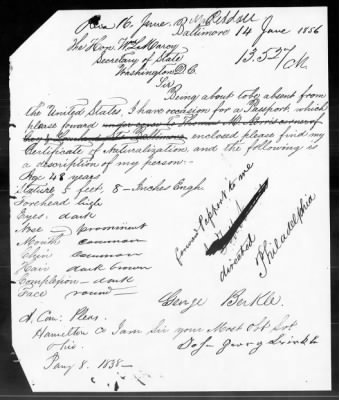 16 June
Baltimore 14 June 1856
The Hon. Wm L Marcy
Secretary of State
Washington D.C.
13.527
Sir
Being about to be absent from
the United States, I have occasion for a Passport, which
please forward
enclosed please find my
Certificate of Naturalization, and the following is
a description of my person:-
Age 48 years
Stature 5 feet, 8-Inches Engh
Forehead high
Eyes. dark
Nose - prominent
Mouth common
Chin common
Hair dark brown
Complexion - dark
Face round
forward Passport to me
directed
Philadelphia
George Berkle.
Ct. Com: Pleas.
Hamilton Co
Ohio.
Jany 8. 1838-
I am Sir your Most Obt Svt